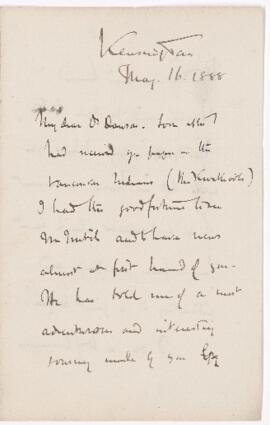 Kensington
May 16. 1888
My dear Dr Dawson. Soon after
I had received yr paper on the
Vancouver Indians (the Kwakiools)
I had the good fortune to see
Mr and to have news
almost at first hand of you.
He has told me of a most
adventurous and interesting
journey made by you